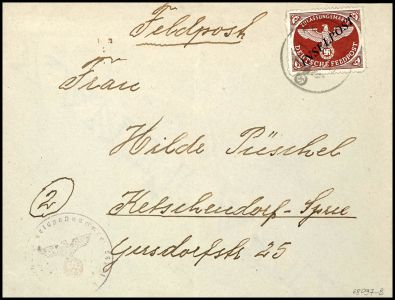 Feldpost
ZULASSUNGSMARKE
INSELPOST
DEUTSCHE FELDPOST
Frau
Hilde Püschel
② Ketschendorf-Spree
Gersdorfstr 25